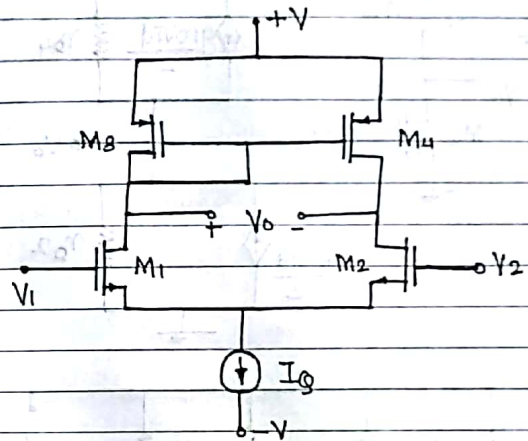 +V
M3 M4
+ Vo -
M1 M2
V1 V2
IQ
-V